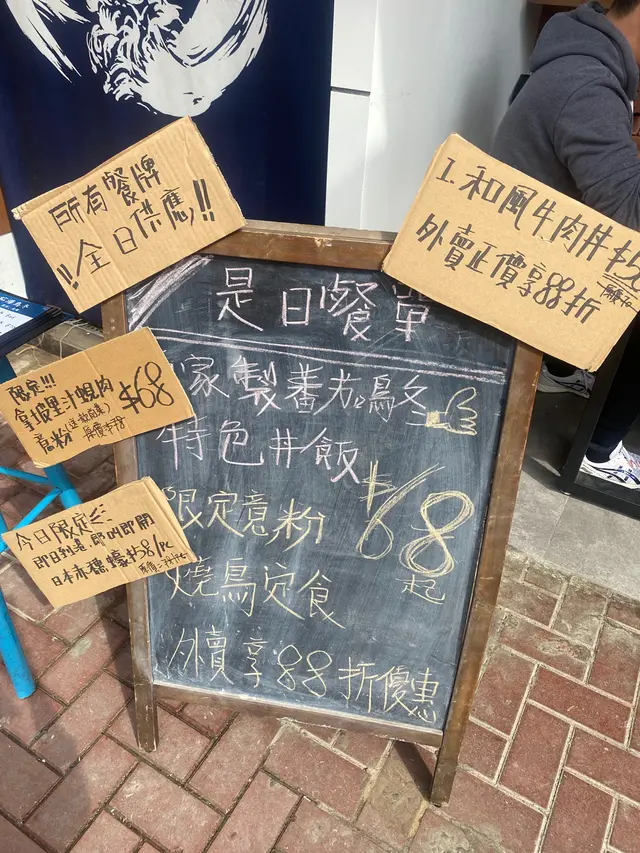 所有餐牌
!!全日供應!!
1.和風牛肉丼
外賣正價享88折
是日餐單
家製蕃茄鳥冬
特色丼飯
限定意粉
$68
起
燒鳥定食
外賣享88折優惠
限定!!!
拿坡里汁蜆肉
意粉
$68
今日限定
即日到港,即叫即開
日本赤穗蠔$58/pc